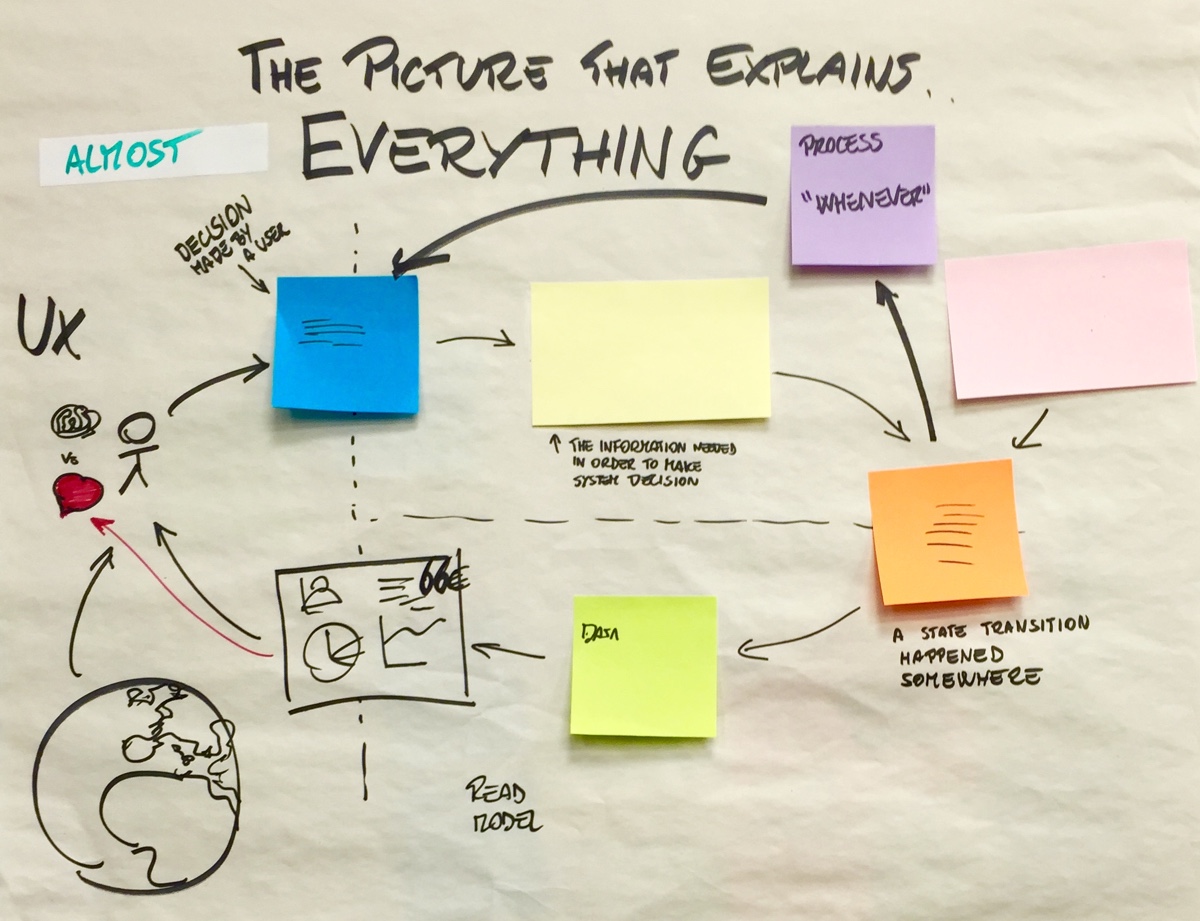 THE PICTURE THAT EXPLAINS..
ALMOST
EVERYTHING
PROCESS
"WHENEVER"
DECISION
MADE BY
A USER
UX
VS
THE INFORMATION NEEDED
IN ORDER TO MAKE
SYSTEM DECISION
66€
DATA
A STATE TRANSITION
HAPPENED
SOMEWHERE
READ
MODEL